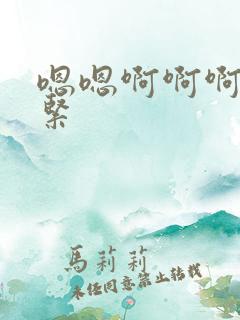 嗯嗯啊啊啊
緊
馬莉莉
未经同意禁止转载